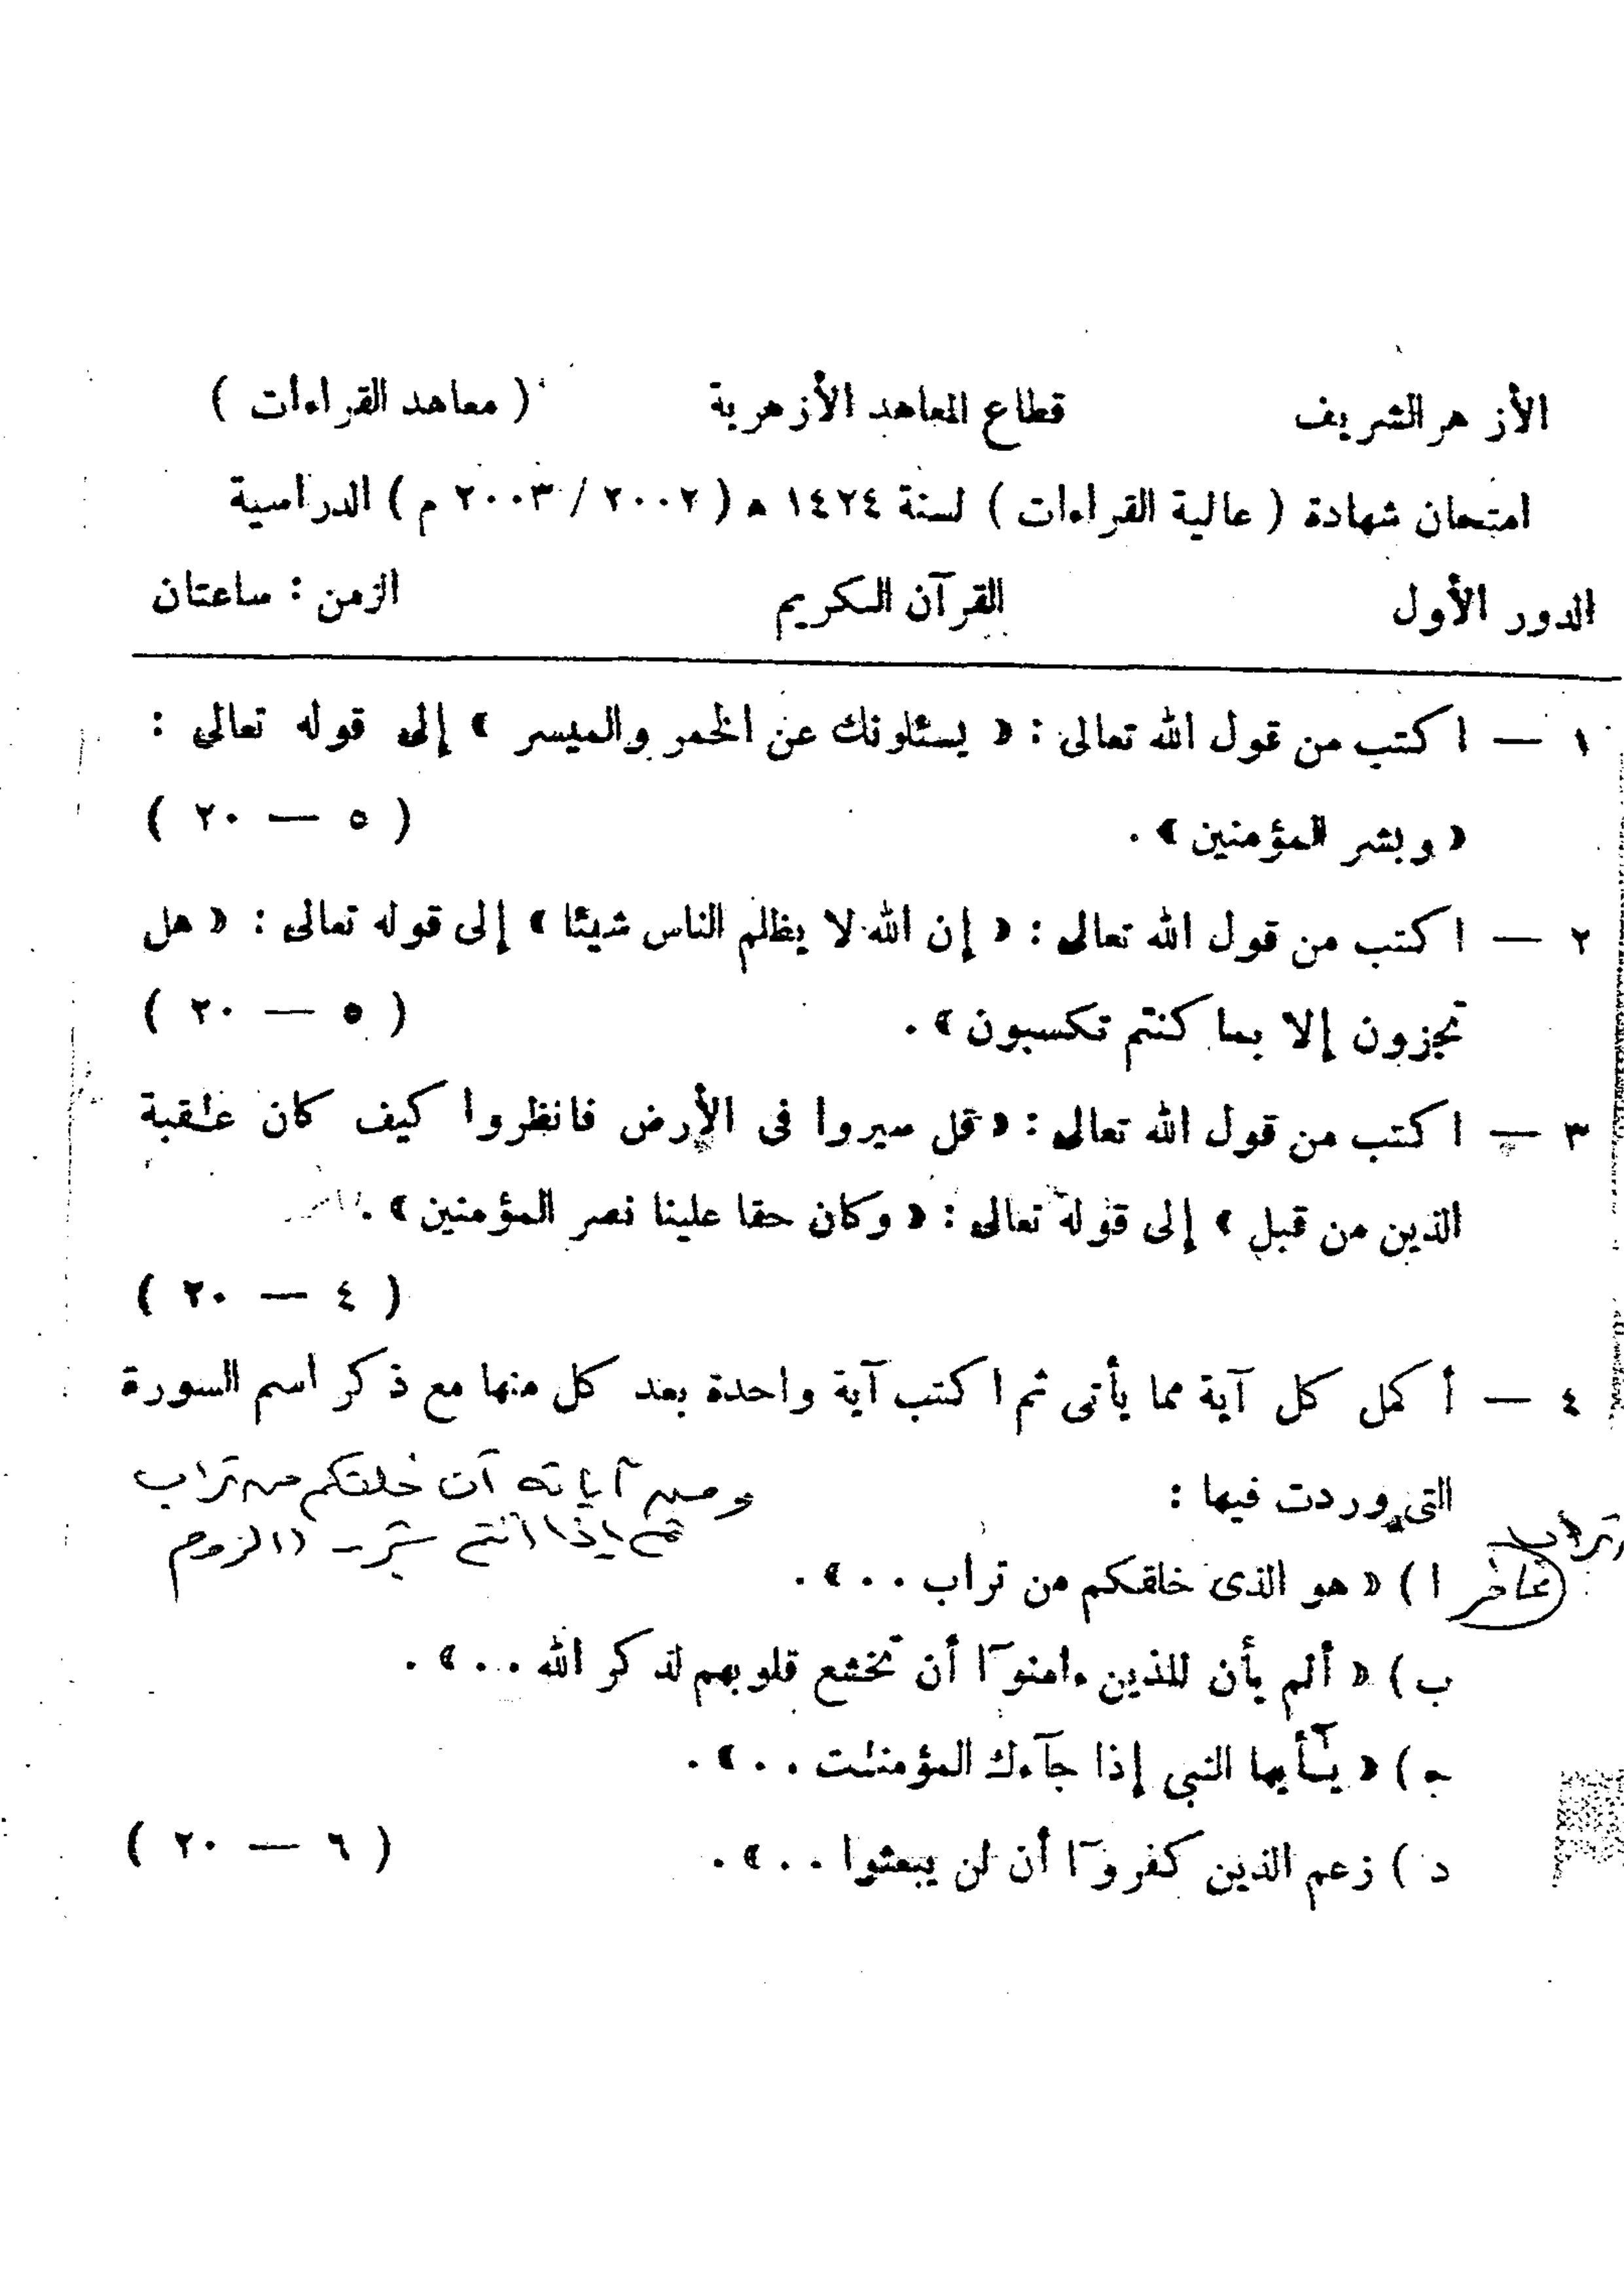 الأزهر الشريف قطاع المعاهد الأزهرية ( معاهد القراءات )
امتحان شهادة ( عالية القراءات ) لسنة ١٤٢٤ ه ( ٢٠٠٢ / ٢٠٠٣ م ) الدراسية
الدور الأول القرآن الكريم الزمن : ساعتان
١ — اكتب من قول الله تعالى : « يسئلونك عن الخمر والميسر » إلى قوله تعالى :
« وبشر المؤمنين » . ( ٥ — ٢٠ )
٢ — اكتب من قول الله تعالى : « إن الله لا يظلم الناس شيئا » إلى قوله تعالى : « هل
تجزون إلا بما كنتم تكسبون » . ( ٥ — ٢٠ )
٣ — اكتب من قول الله تعالى : « قل سيروا فى الأرض فانظروا كيف كان عـٰقبة
الذين من قبل » إلى قوله تعالى : « وكان حقا علينا نصر المؤمنين » .
( ٤ — ٢٠ )
٤ — أكمل كل آية مما يأتى ثم اكتب آية واحدة بعد كل منها مع ذكر اسم السورة
التى وردت فيها : ومن آياته أن خلقكم من تراب
ثم إذا أنتم بشر -- الروم
تراب
ا ) « هو الذى خلقكم من تراب . . » . غافر
ب ) « ألم يأن للذين ءامنوٓا أن تخشع قلوبهم لذكر الله . . » .
ج ) « يـٰٓأيها النبى إذا جآءك المؤمنـٰت . . » .
د ) زعم الذين كفروٓا أن لن يبعثوا . . » . ( ٦ — ٢٠ )